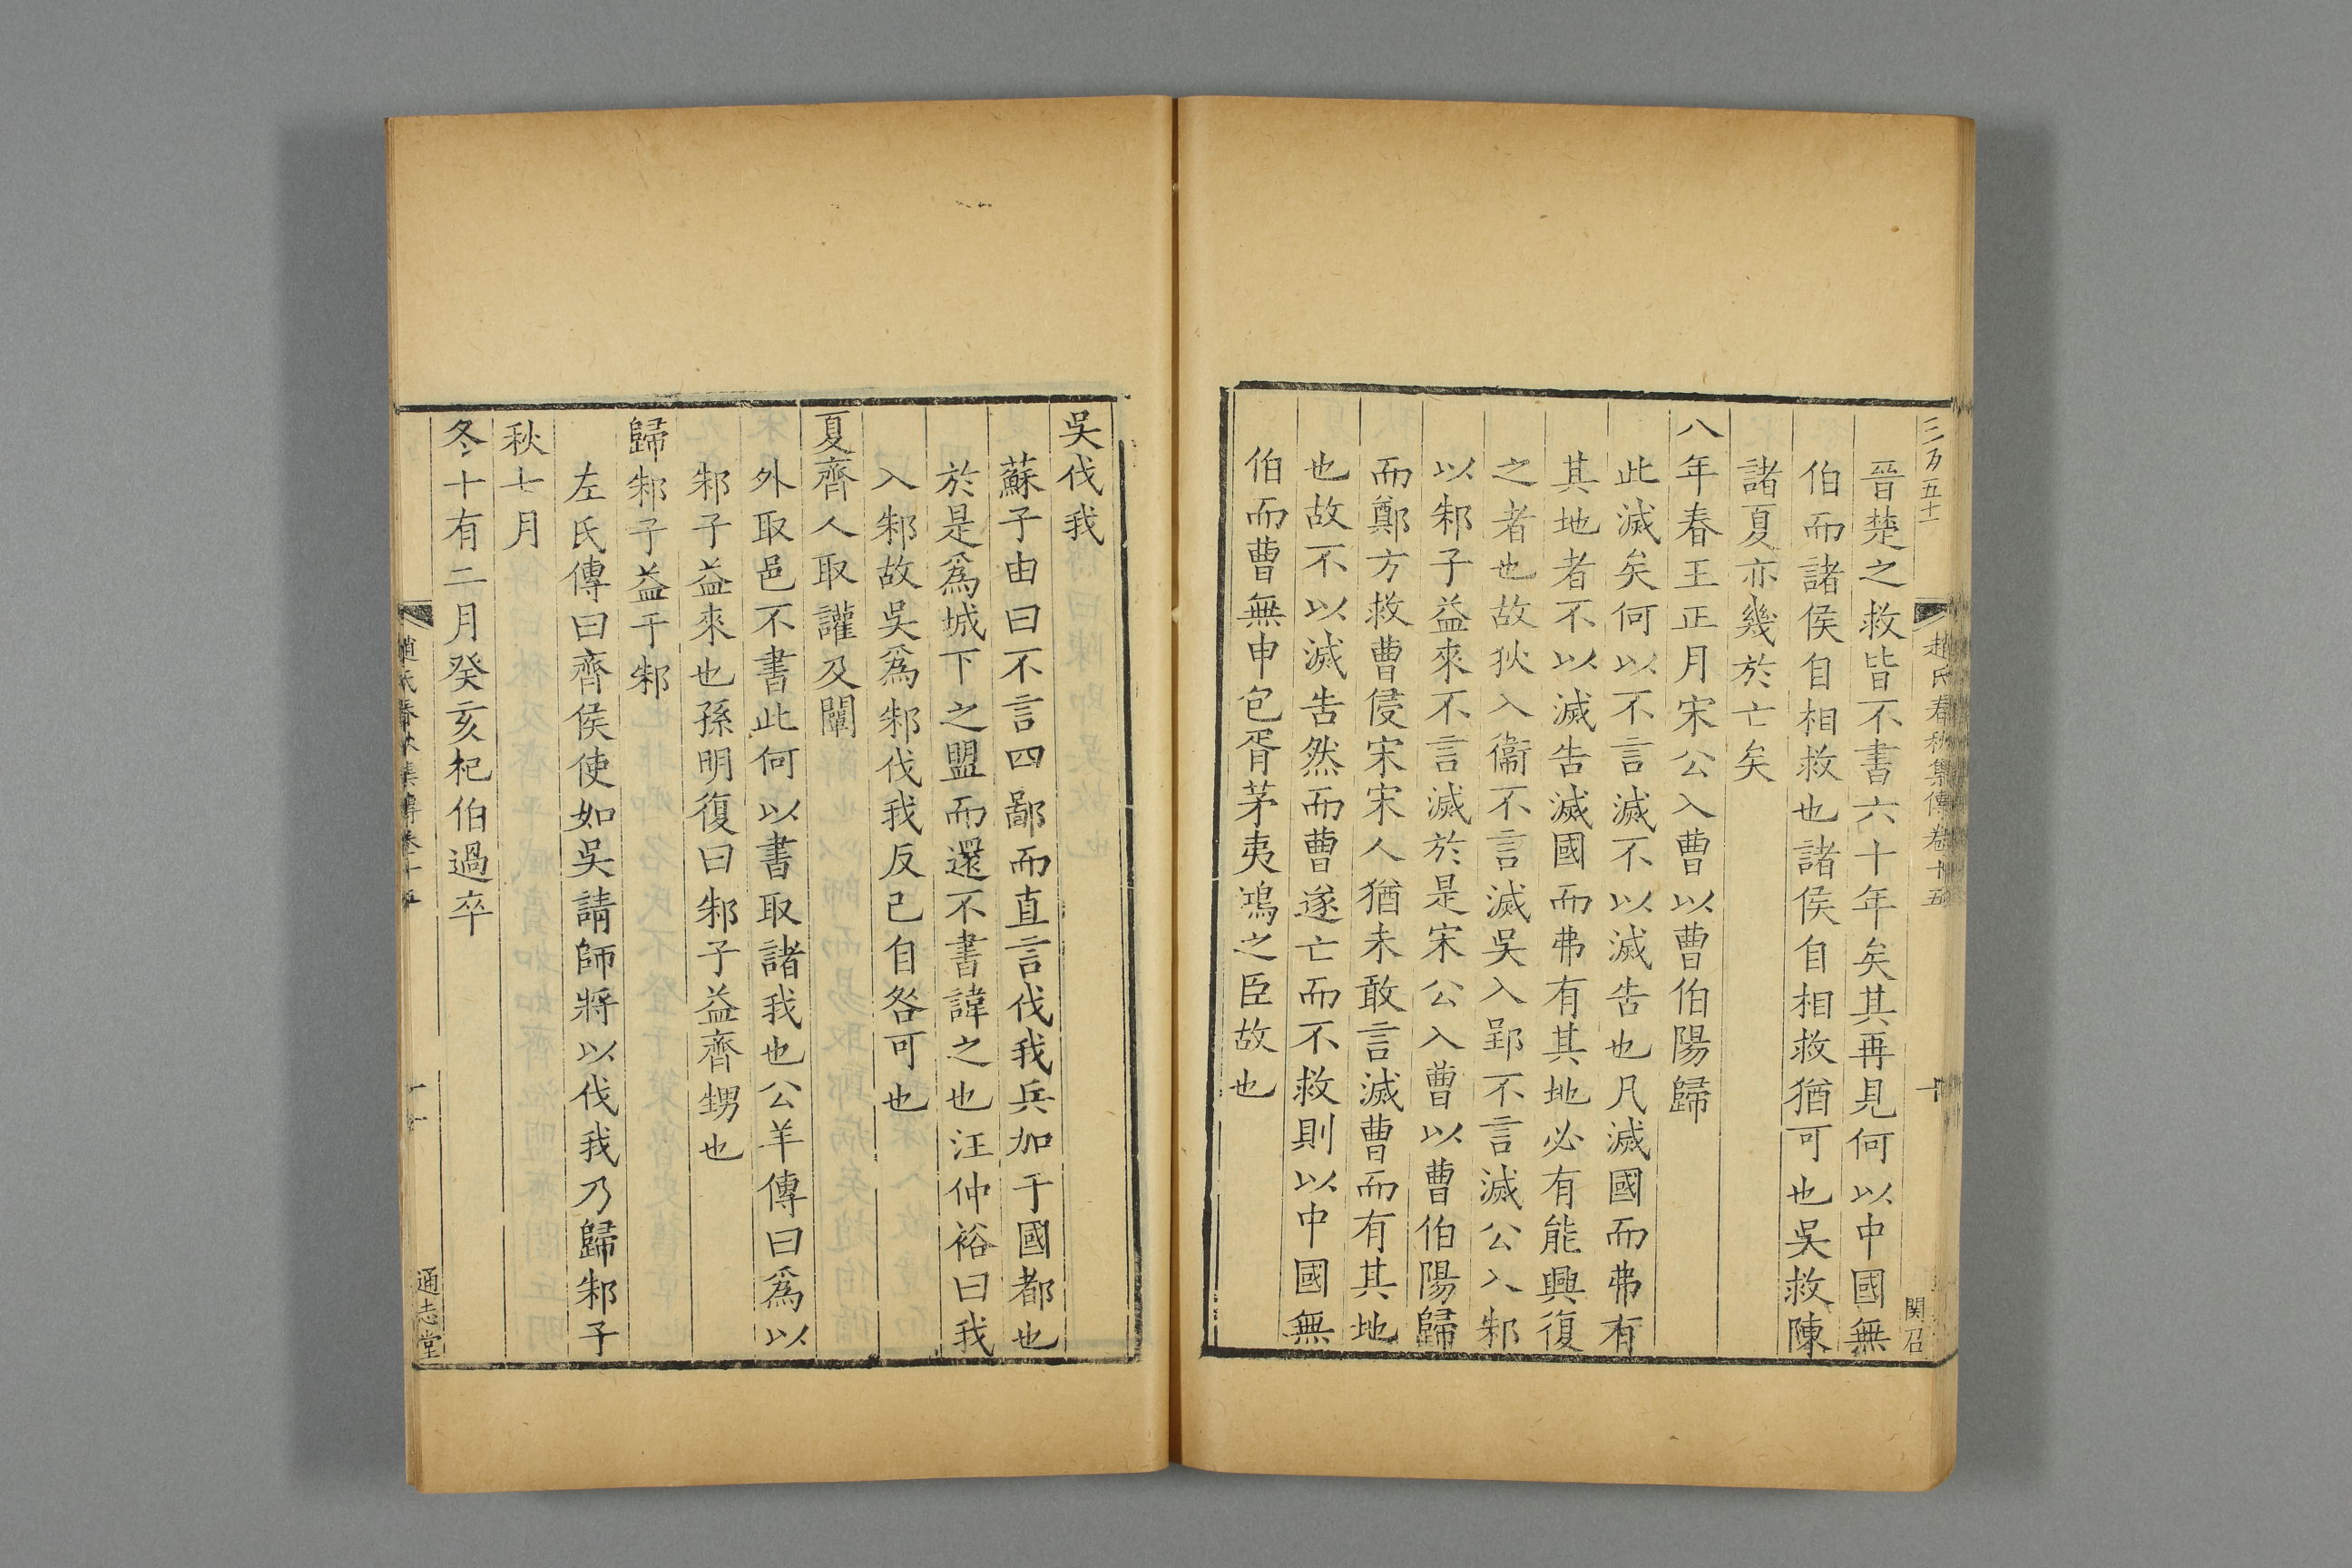 三百五十一
趙氏春秋集傳卷十五
十
関召
晉楚之救皆不書六十年矣其再見何以中國無
伯而諸侯自相救也諸侯自相救猶可也吳救陳
諸夏亦幾於亡矣
八年春王正月宋公入曹以曹伯陽歸
此滅矣何以不言滅不以滅告也凡滅國而弗有
其地者不以滅告滅國而弗有其地必有能興復
之者也故狄入衞不言滅吳入郢不言滅公入邾
以邾子益來不言滅於是宋公入曹以曹伯陽歸
而鄭方救曹侵宋宋人猶未敢言滅曹而有其地
也故不以滅告然而曹遂亡而不救則以中國無
伯而曹無申包胥茅夷鴻之臣故也
吳伐我
蘇子由曰不言四鄙而直言伐我兵加于國都也
於是爲城下之盟而還不書諱之也汪仲裕曰我
入邾故吳爲邾伐我反己自咎可也
夏齊人取讙及闡
外取邑不書此何以書取諸我也公羊傳曰爲以
邾子益來也孫明復曰邾子益齊甥也
歸邾子益于邾
左氏傳曰齊侯使如吳請師將以伐我乃歸邾子
秋七月
冬十有二月癸亥杞伯過卒
趙氏春秋集傳卷十五
十一
通志堂